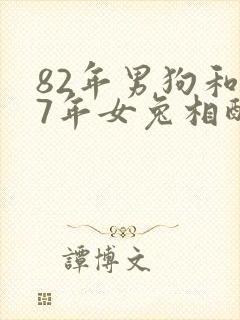 82年男狗和
7年女兔相配
譚博文